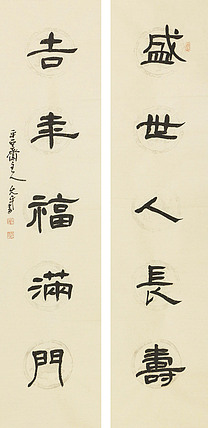 盛世人長壽
吉年福滿門